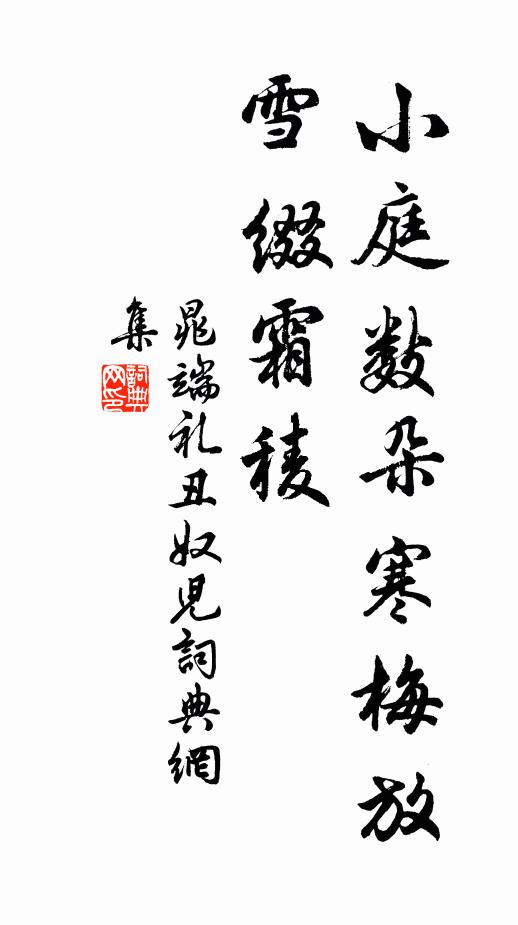 小庭数朵寒梅放
雪缀霜稜
晁端礼丑奴児詞典網
集
詞典
网印